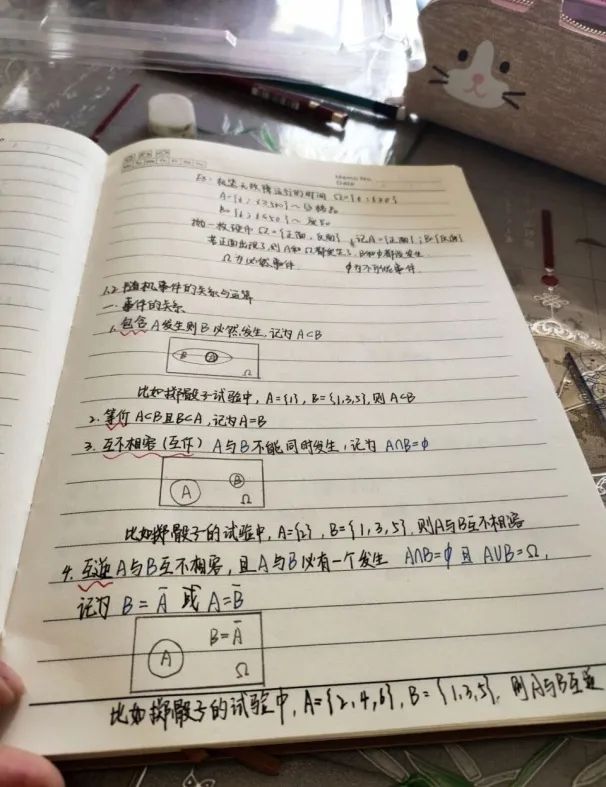 Memo No.
Date
例: 机器无故障运行的时间 Ω={t; t≥0}
抛一枚硬币 Ω={正面, 反面} 记A={正面}; B={反面}
若正面出现了, 则A和Ω都发生了; B和φ都没发生
Ω为必然事件 φ为不可能事件
1.2 随机事件的关系与运算
一. 事件的关系
1. 包含 A发生则B必然发生, 记为A⊂B
B A
Ω
比如掷骰子试验中, A={1}, B={1,3,5}, 则A⊂B
2. 等价 A⊂B且B⊂A, 记为A=B
3. 互不相容(互斥) A与B不能同时发生, 记为 A∩B=φ
A B
Ω
比如掷骰子的试验中, A={2}, B={1,3,5}, 则A与B互不相容
4. 互逆 A与B互不相容, 且A与B必有一个发生 A∩B=φ 且 A∪B=Ω,
记为 B=Ā 或 A=B̄
A B=Ā
Ω
比如掷骰子的试验中, A={2,4,6}, B={1,3,5}, 则A与B互逆